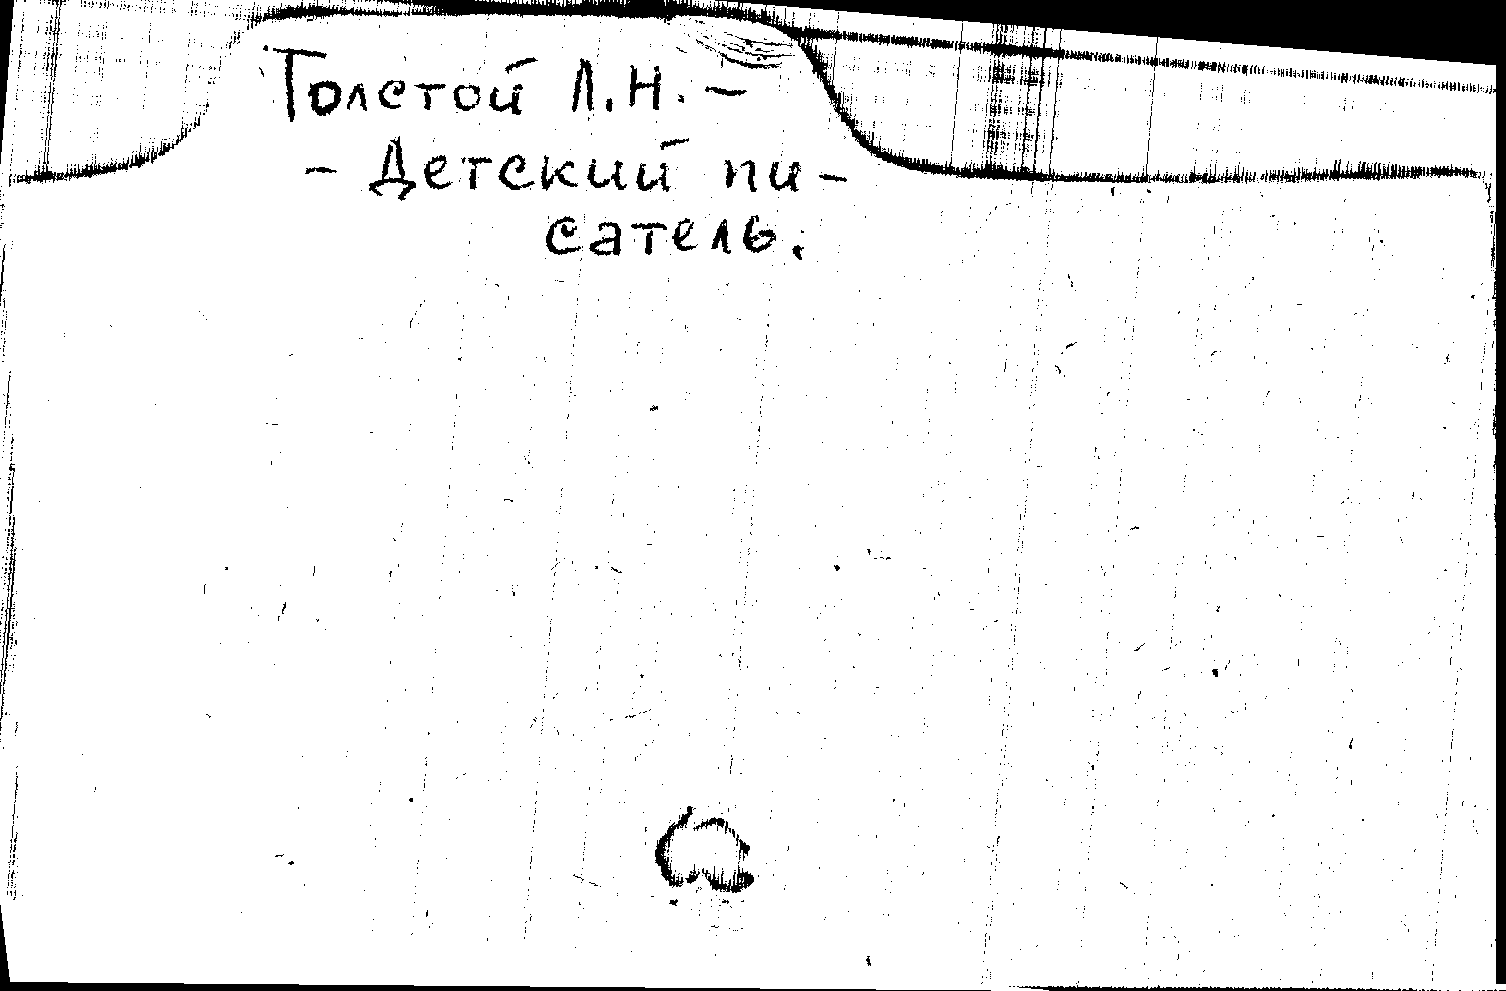 Толстой Л.Н. –
– Детский пи-
сатель.